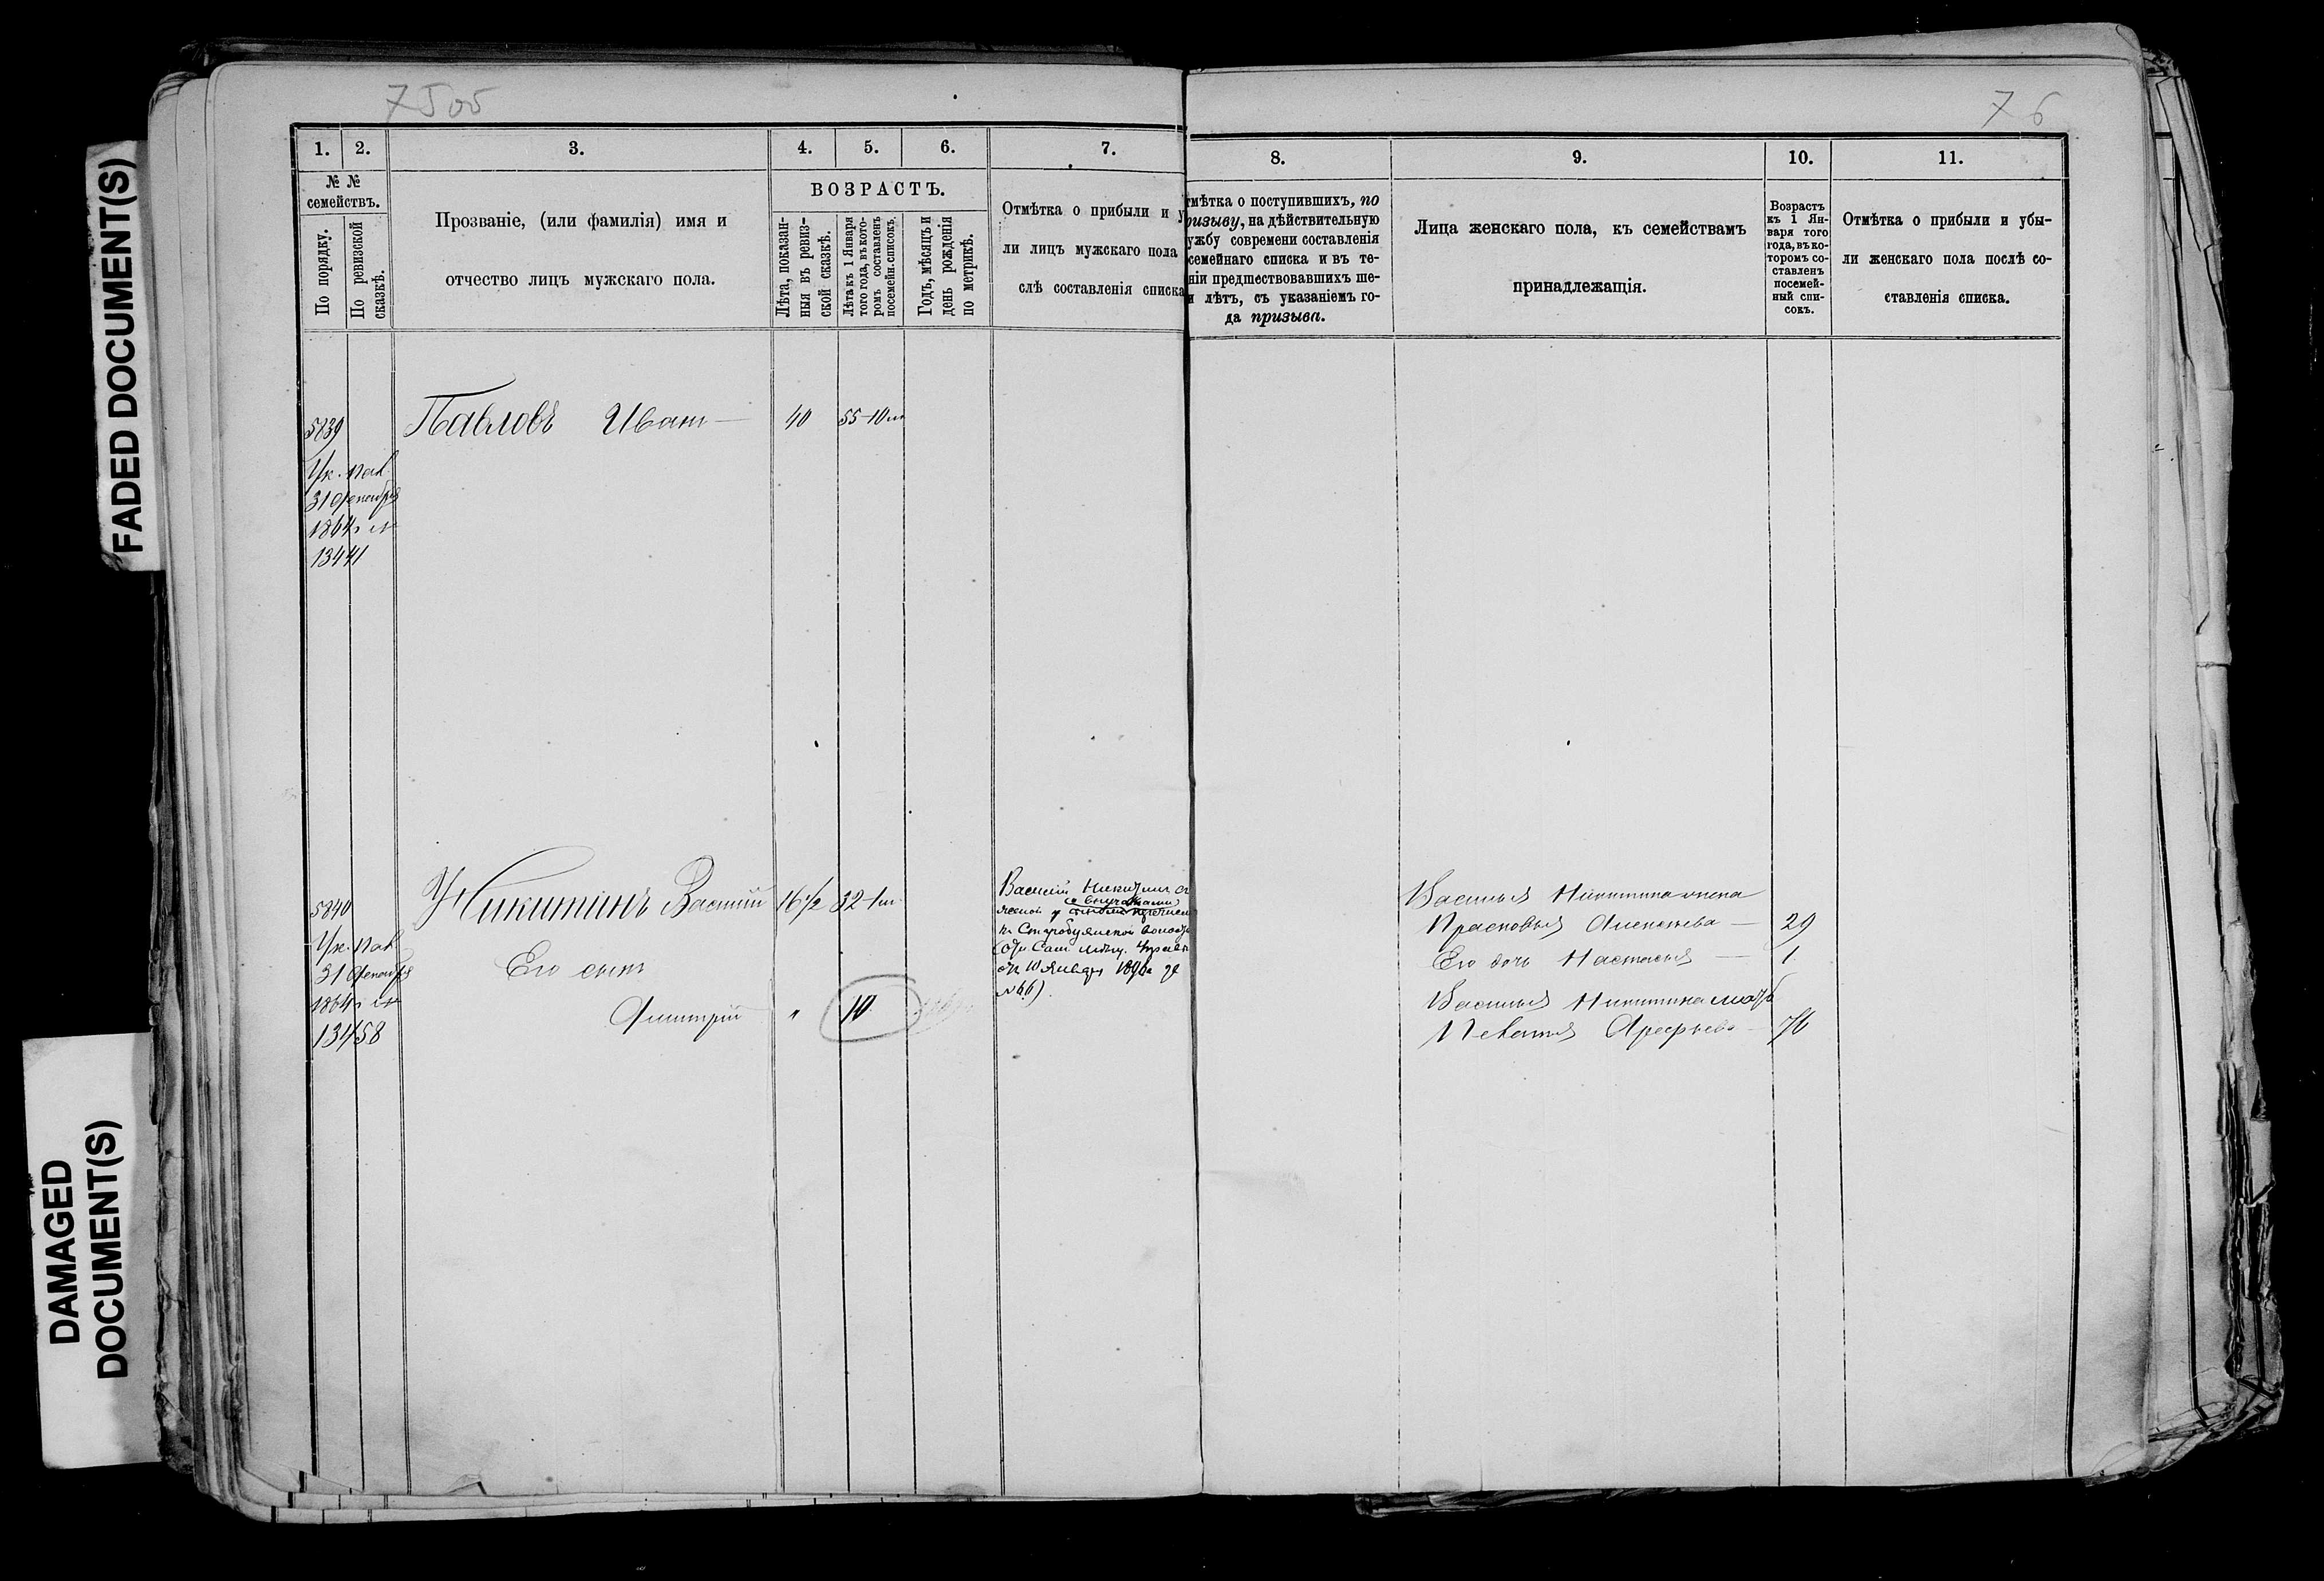 FADED DOCUMENT(S)
DAMAGED
DOCUMENT(S)
75об
76
1. 2. 3. 4. 5. 6. 7.
№ №
семействъ.
По порядку.
По ревизской
сказкѣ.
Прозваніе, (или фамилія) имя и
отчество лицъ мужскаго пола.
ВОЗРАСТЪ.
Лѣта, показан-
ныя въ ревиз-
ской сказкѣ.
Лѣта къ 1 Января
того года, въ кото-
ромъ составленъ
посемейн. списокъ.
Годъ, мѣсяцъ и
день рожденія
по метрикѣ.
Отмѣтка о прибыли и у
ли лицъ мужскаго пола
слѣ составленія списка
8. 9. 10. 11.
тмѣтка о поступившихъ, по
ризыву, на дѣйствительную
ужбу современи составленія
семейнаго списка и въ те-
ніи предшествовавшихъ ше-
и лѣтъ, съ указаніемъ го-
да призыва.
Лица женскаго пола, къ семействамъ
принадлежащія.
Возрастъ
къ 1 Ян-
варя того
года, въ ко-
торомъ со-
ставленъ
посемей-
ный спи-
сокъ.
Отмѣтка о прибыли и убы-
ли женскаго пола послѣ со-
ставленія списка.
5839 Павловъ Иванъ — 40 55-10м
Ук. Пал.
31 Декабря
1864 г. №
13441
5840 Никитинъ Василій 16 1/2 32-1м
Ук. Пал.
31 Декабря
1864 г. №
13458
Его сынъ
Дмитрій " 10
Василій Никитинъ съ
къ Старобуянской волости
от 10 Января
№ 66).
Василья Никитина жена
Прасковья Алексѣева — 29
Его дочь Настасья — 1
Василья Никитина мать
Арефьева — 76